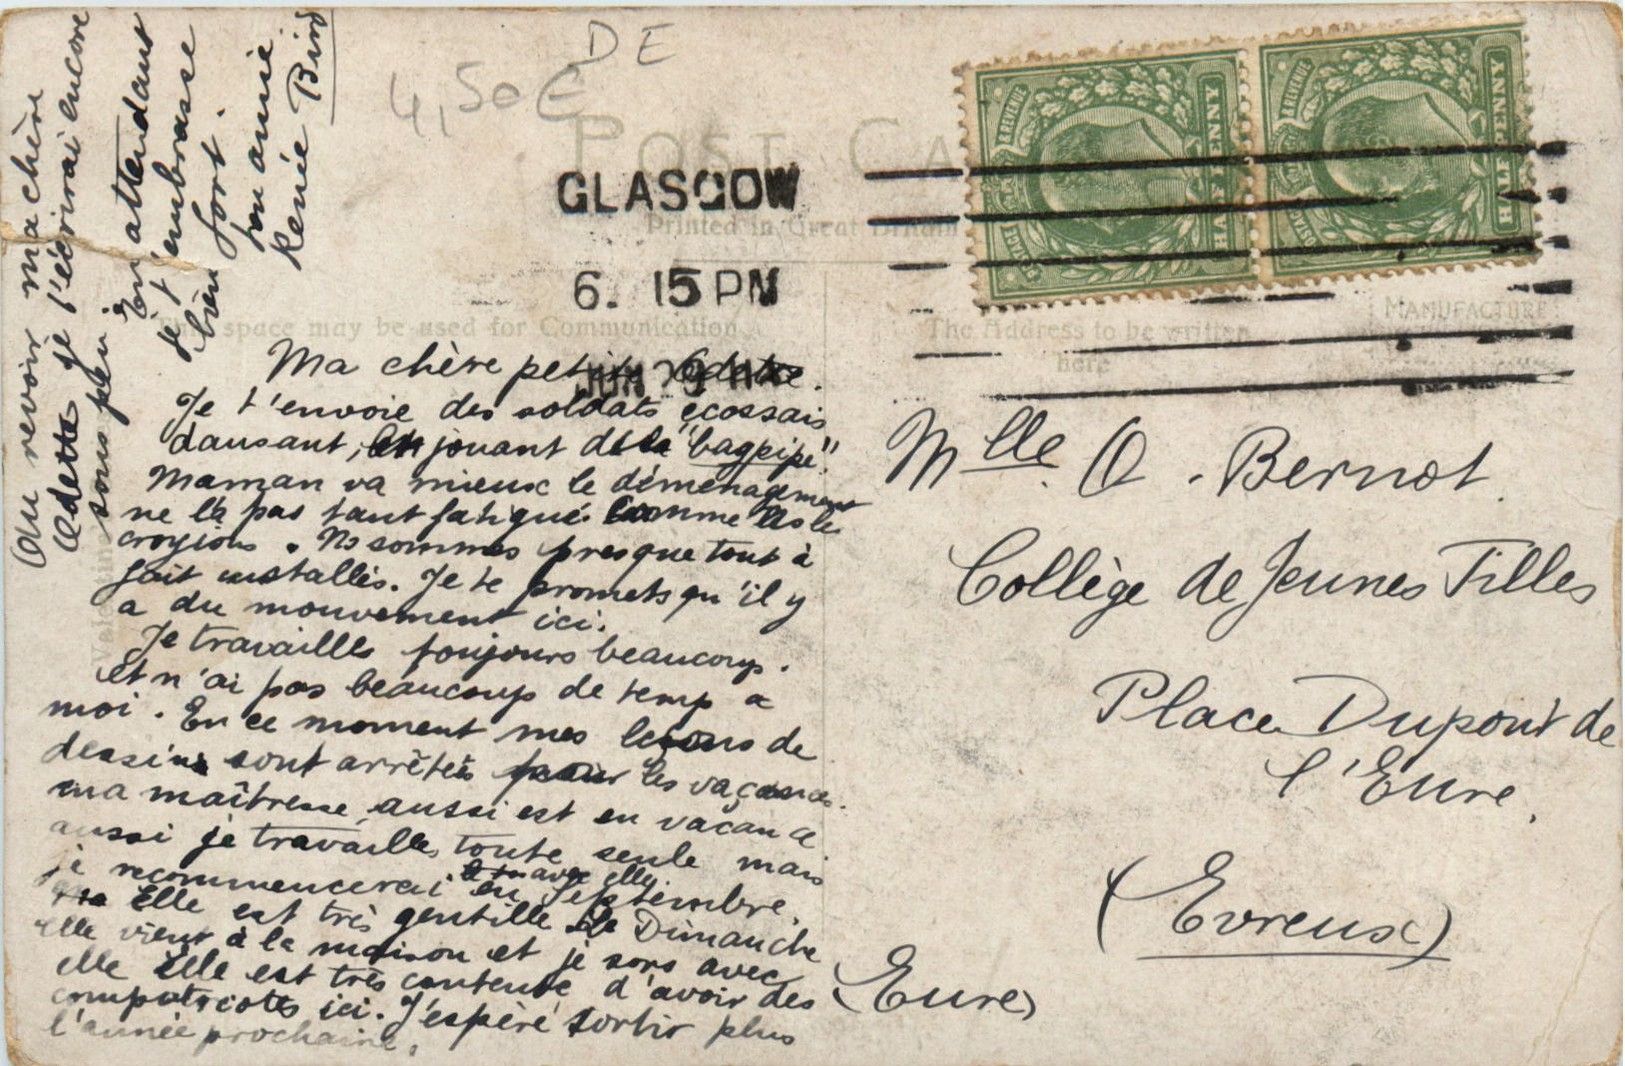 DE
4,50€
POST CA
GLASGOW
Printed in Great Britain
6. 15 PM
JUN 29
This space may be used for Communication
The Address to be written
here
MANUFACTURE
POSTAGE & REVENUE
HALFPENNY
POSTAGE & REVENUE
HALFPENNY
Ma chère petite Odette.
Je t'envoie des soldats écossais
dansant, en jouant de la "bagpipe".
Maman va mieux le déménagement
ne l'a pas tant fatigué comme ns le
croyions. Ns sommes presque tout à
fait installés. Je te promets qu'il y
a du mouvement ici.
Je travaille toujours beaucoup.
et n'ai pas beaucoup de temp a
moi. En ce moment mes leçons de
dessin sont arrêtés pour les vaçances.
ma maîtresse aussi est en vacance
aussi je travaille toute seule mais
je recommencerai avec elle en Septembre.
Elle est très gentille Le Dimanche
elle vient à la maison et je sors avec
elle Elle est très contente d'avoir des
compatriotes ici. J'espère sortir plus
l'année prochaine.
Au revoir ma chère
Odette je t'écrirai encore
sous peu.
En attendant
je t'embrasse
bien fort.
ton amie
Renée
Mlle. O. Bernot.
Collège de Jeunes Filles
Place Dupont de
l'Eure.
(Evreux)
(Eure)